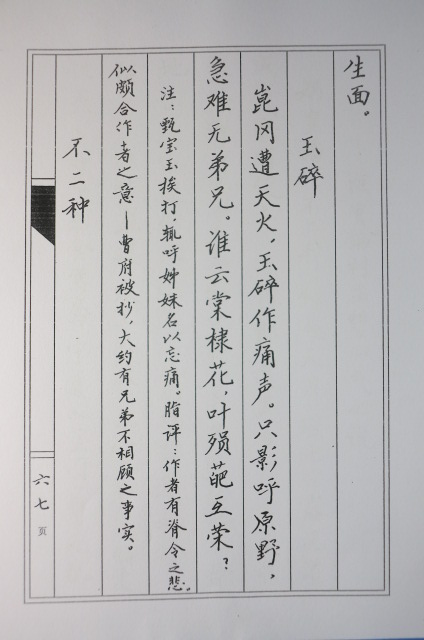 生面。
玉碎
崑冈遭天火，玉碎作痛声。只影呼原野，
急难无弟兄。谁云棠棣花，叶殒葩互荣？
注：甄宝玉挨打，辄呼姊妹名以忘痛。脂评：作者有脊令之悲。
似颇合作者之意—曹府被抄，大约有兄弟不相顾之事实。
不二种
六七页